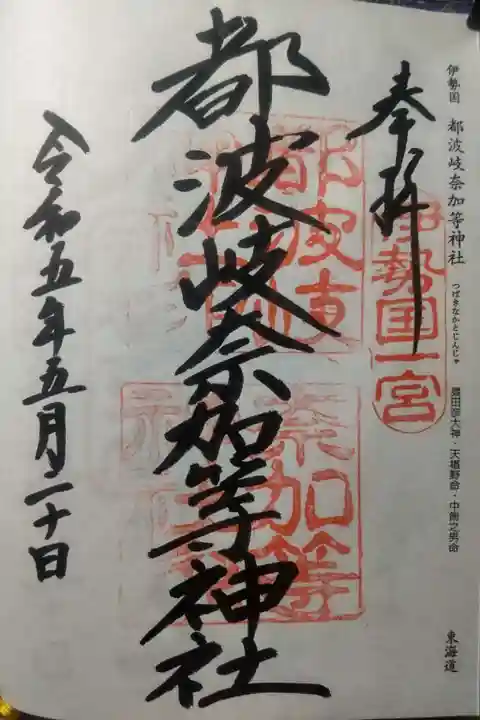 伊勢国 都波岐奈加等神社 つばきなかとじんじゃ 猿田彦大神・天椹野命・中筒之男命 東海道
奉拝
伊勢国一宮
都波岐奈加等神社
都波岐
奈加等
令和五年五月二十日